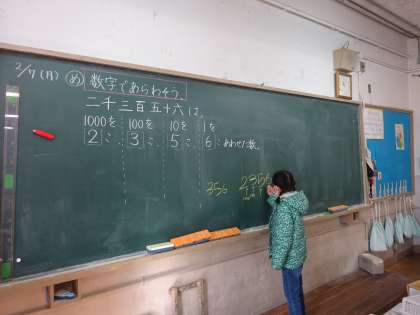 2/7(月) め 数字であらわそう。
二千三百五十六は、
1000を 100を 10を 1を
2こ、3こ、5こ、6こあわせた数。
356 2356